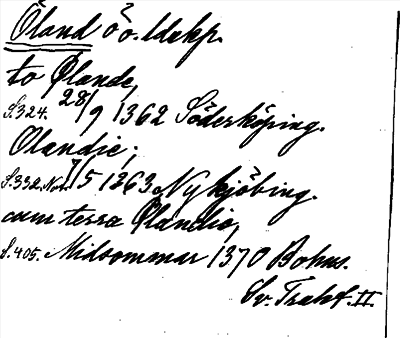 Öland ö o. ldskp.
to Ølande,
S. 324. 28/9 1362 Söderköping.
Olandie;
S. 332. Not. 7/5 1363 Nykjöbing.
cum terra Ølandio,
S. 405. Midsommar 1370 Bohus.
Sv. Trakt. II.